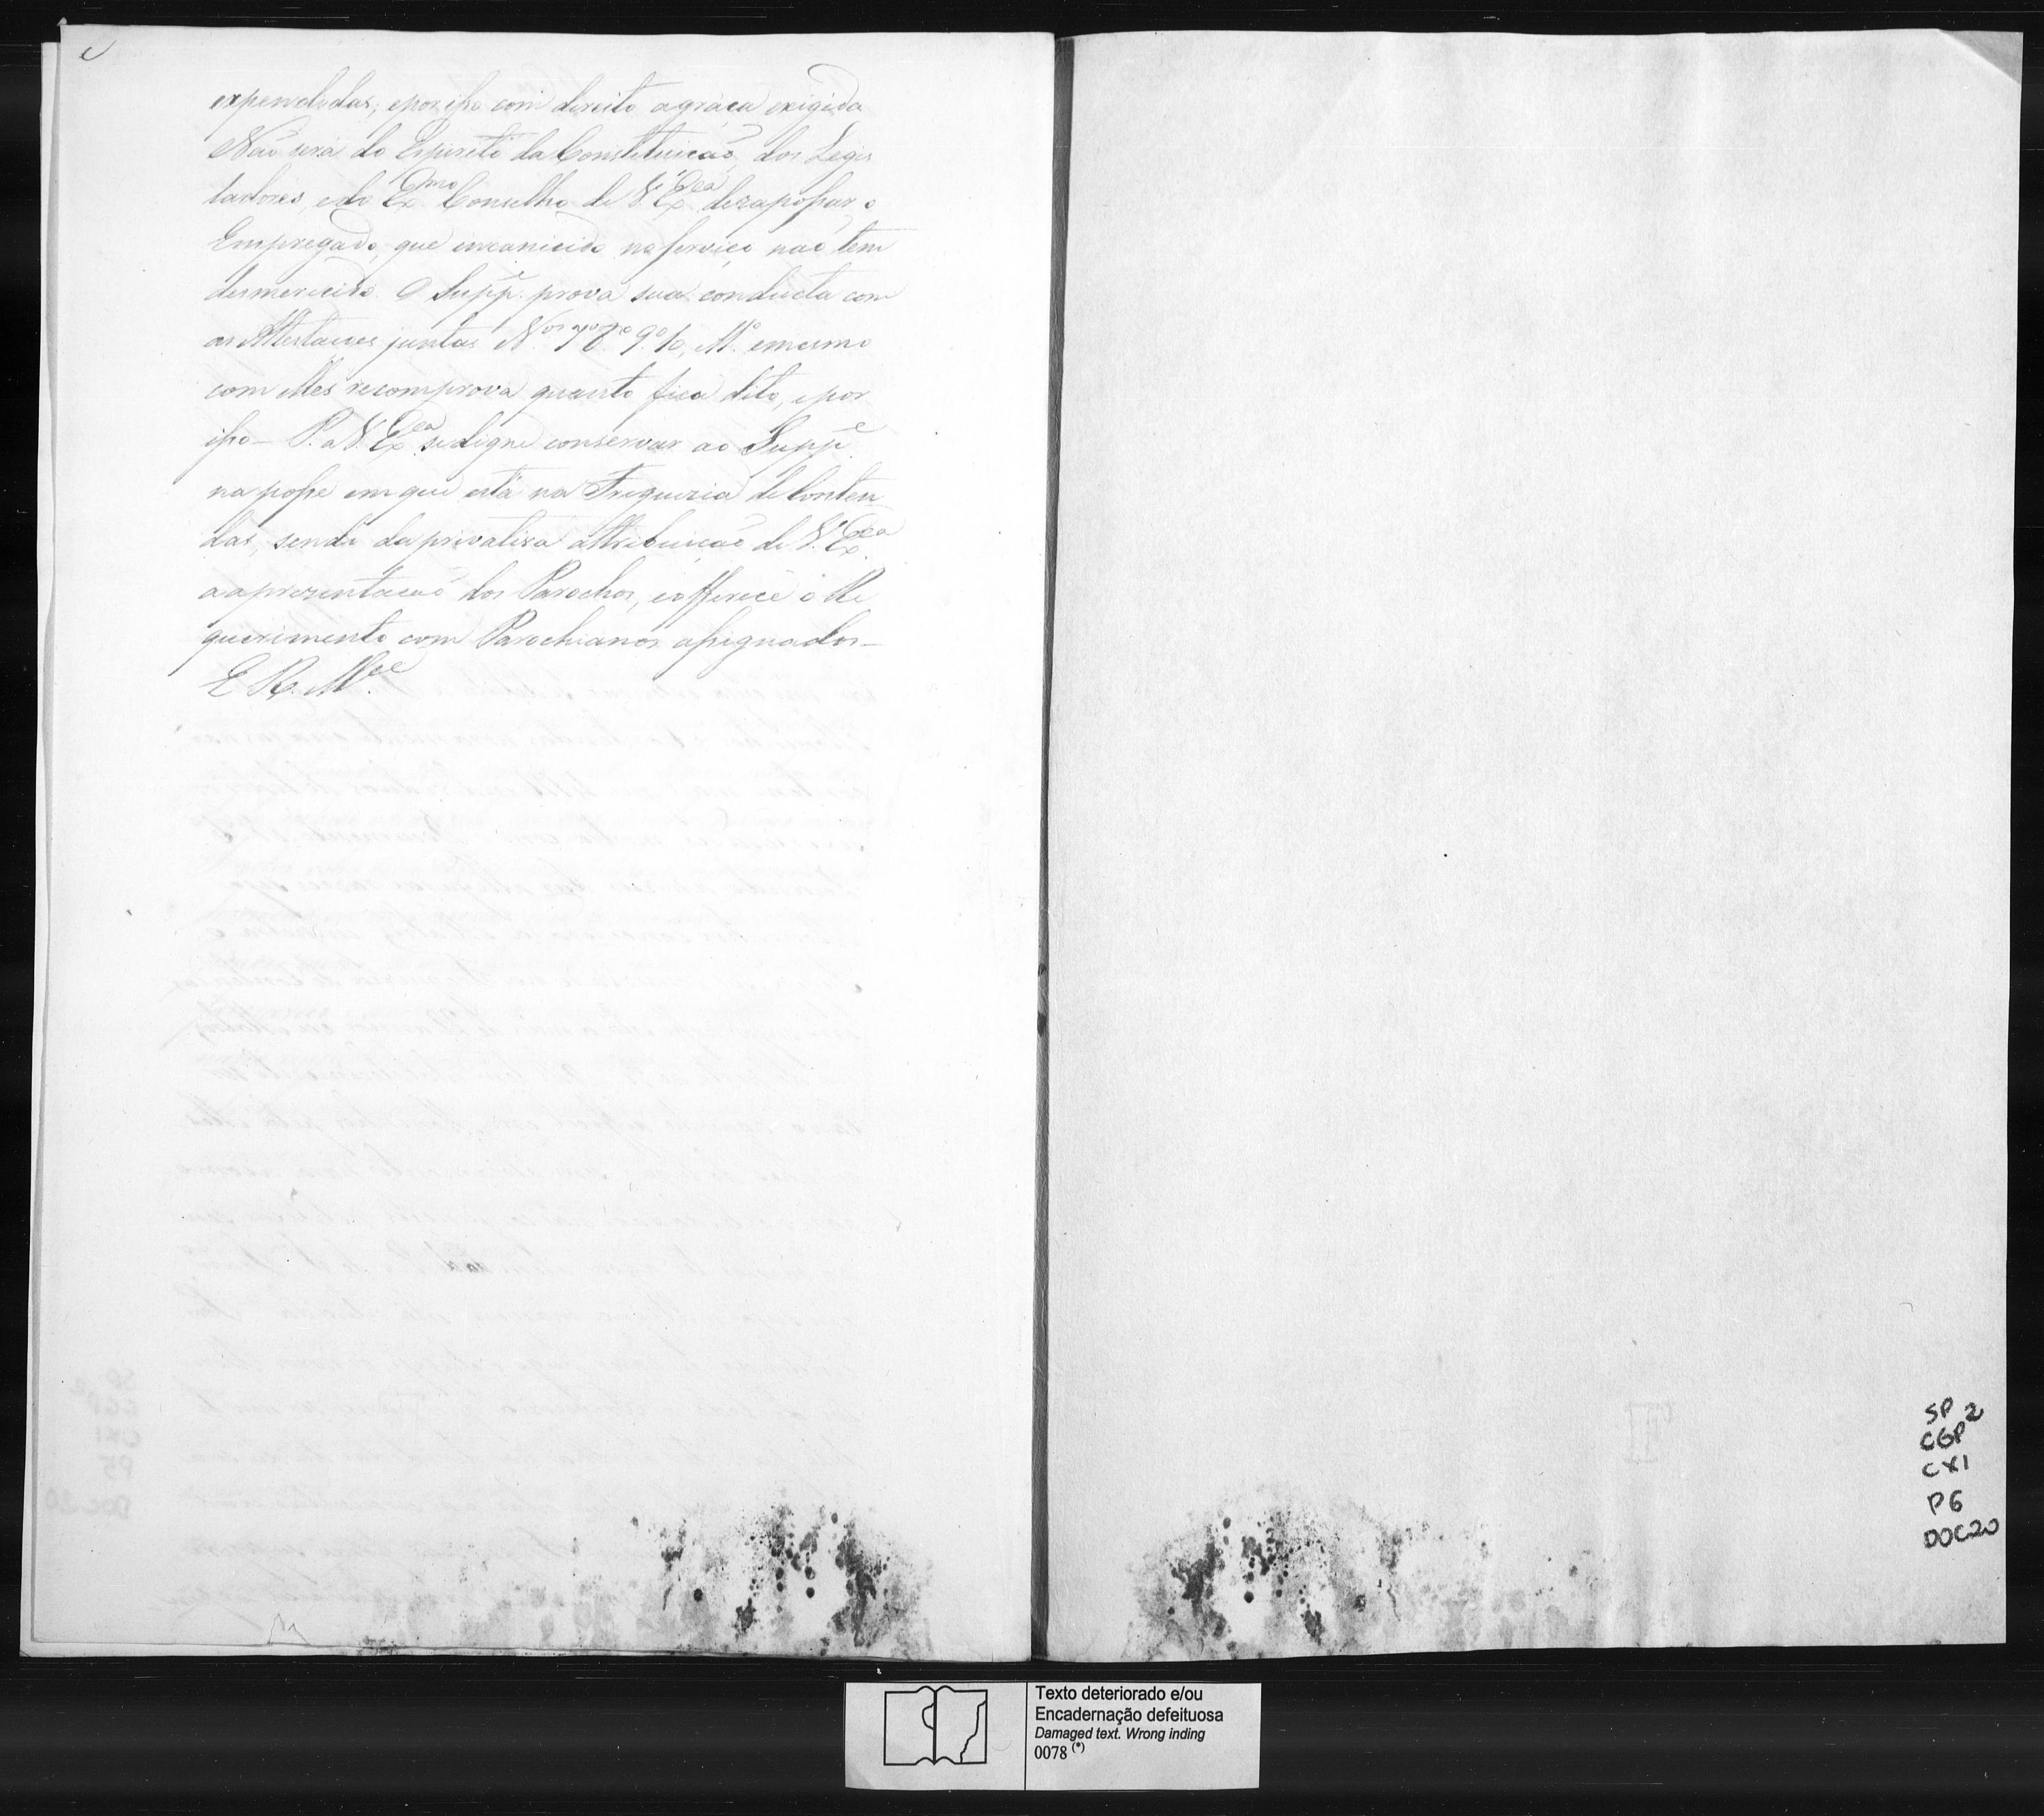 expendidas, eporisso com direito agraça exigida
Não será do Espirito da Constituição, dos Legis
ladores, edo Exmo Conselho de V. Exca dezapossar o
Empregado, que incanicido no serviço não tem
desmericido. O Suppe prova sua conducta com
as Attestações juntas Nos 7º 8º 9º 10, emesmo
com elles recomprova quanto fica dito, epor
isso — P. a V. Exca sedigne conservar ao Suppe
na posse emque está na Freguezia de Conten
das, sendo da privativa attribuição de V. Exca
aaprezentação dos Parochos, eofferece o Re
querimento com Parochianos assignados —
E R. Mce
SP
CGP 2
CX1
P6
DOC20
Texto deteriorado e/ou
Encadernação defeituosa
Damaged text. Wrong inding
0078 (*)